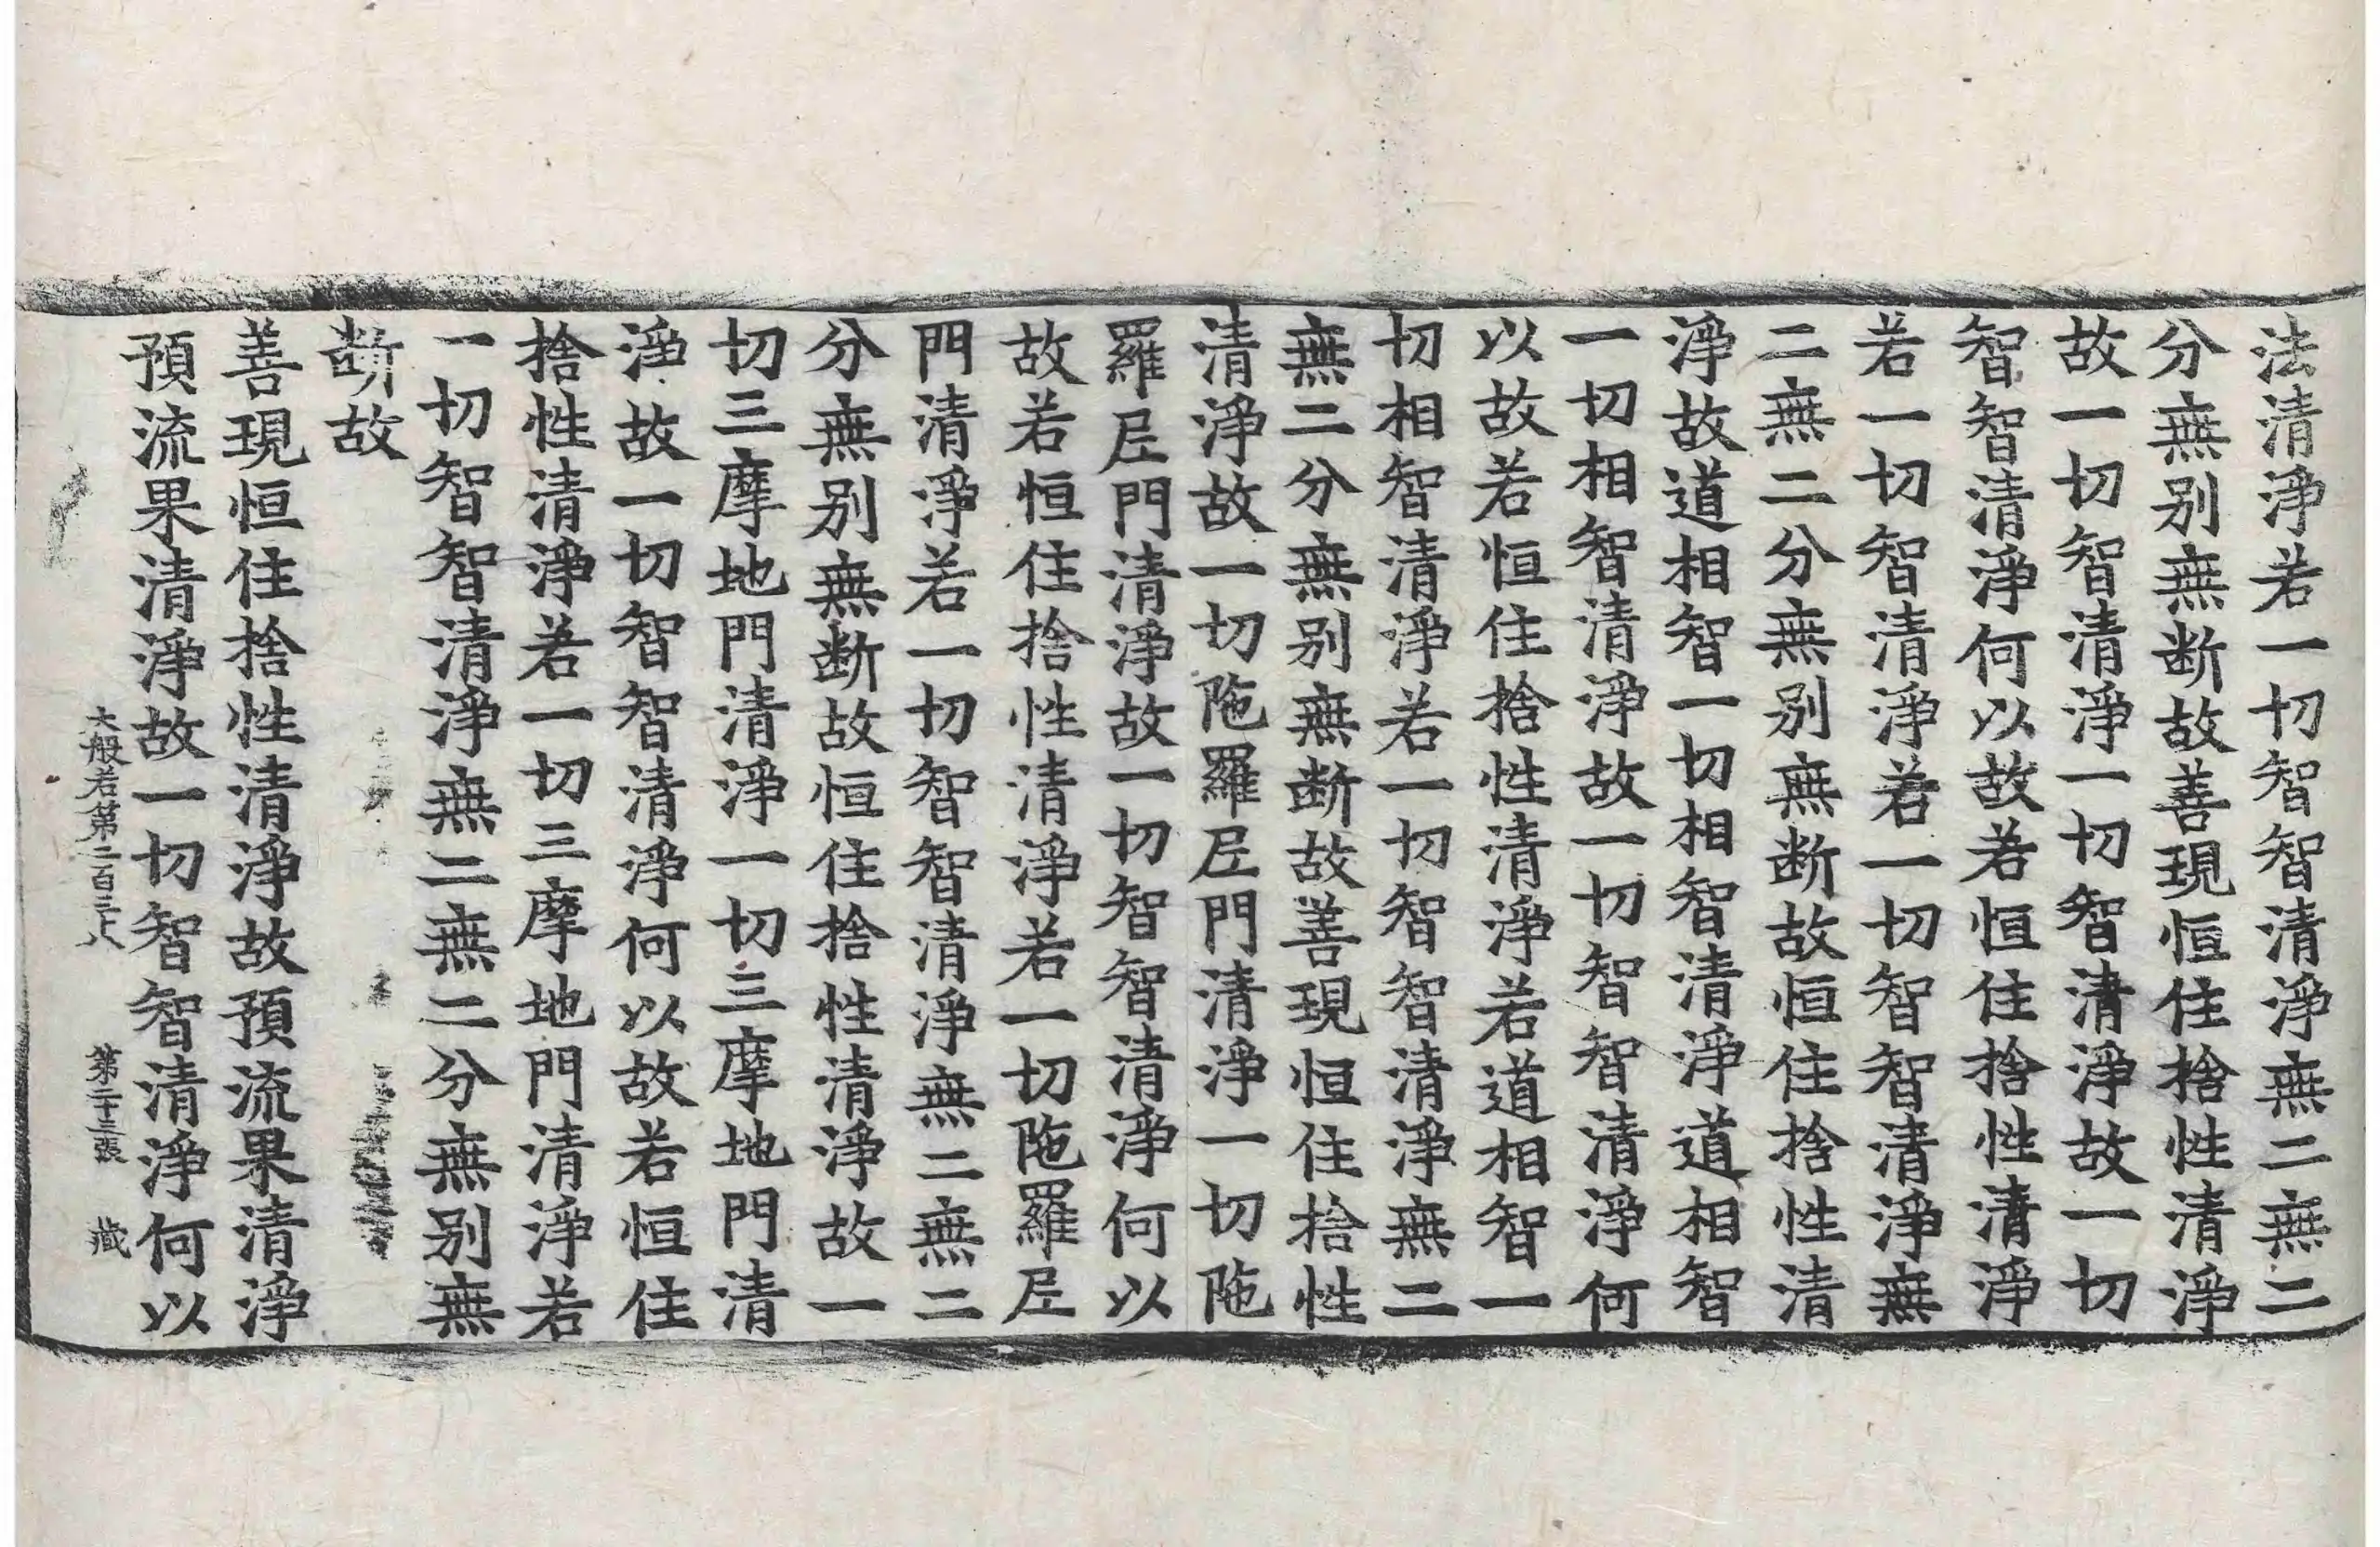 法清淨若一切智智清淨無二無二
分無别無断故善現恒住捨性清淨
故一切智清淨一切智清淨故一切
智智清淨何以故若恒住捨性清淨
若一切智清淨若一切智智清淨無
二無二分無别無断故恒住捨性清
淨故道相智一切相智清淨道相智
一切相智清淨故一切智智清淨何
以故若恒住捨性清淨若道相智一
切相智清淨若一切智智清淨無二
無二分無别無断故善現恒住捨性
清淨故一切陁羅尼門清淨一切陁
羅尼門清淨故一切智智清淨何以
故若恒住捨性清淨若一切陁羅尼
門清淨若一切智智清淨無二無二
分無别無断故恒住捨性清淨故一
切三摩地門清淨一切三摩地門清
淨故一切智智清淨何以故若恒住
捨性清淨若一切三摩地門清淨若
一切智智清淨無二無二分無别無
断故
善現恒住捨性清淨故預流果清淨
預流果清淨故一切智智清淨何以
大般若第二百三十八 第二十三張 藏